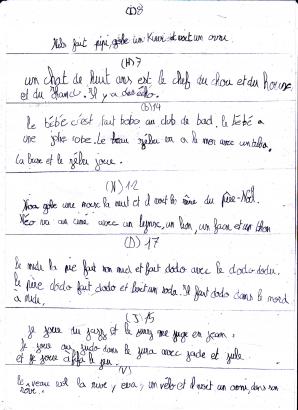 fait pipi, gobe un kiwi et voit un
(H) 7
un chat de huit ans est le chef du chou et du houx,
et du Il y a des
(B) 14
le bébé c'est fait bobo au club de bad. le bébé a
une jolie robe. Le beau zébu va a la mer avec un
La buse et le zébu joue.
(N) 12
gobe une noix la nuit et il voit les du père-Noël.
Néo va au ciné avec un lynx, un lion, un faon et un thon
(D) 17
le midi la pie fait non midi et fait dodo avec le dodo dodu.
le père dodo fait dodo et boit un soda. Il fait dodo dans le nord
à midi.
(J) 15
je joue du jazz et le juge en jean.
je joue au judo dans le jura avec jade et julie.
et je joue à le jeu
(V)
le veau voit la rive, un vélo et il voit un dans son
rêve.